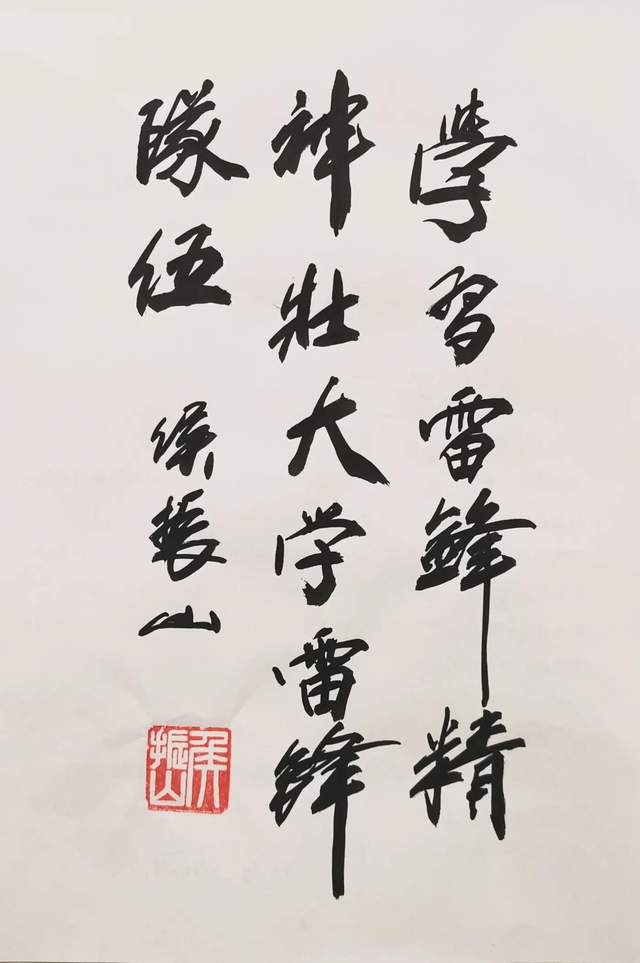 學习雷鋒精
神壮大学雷锋
隊伍
侯振山
侯振山